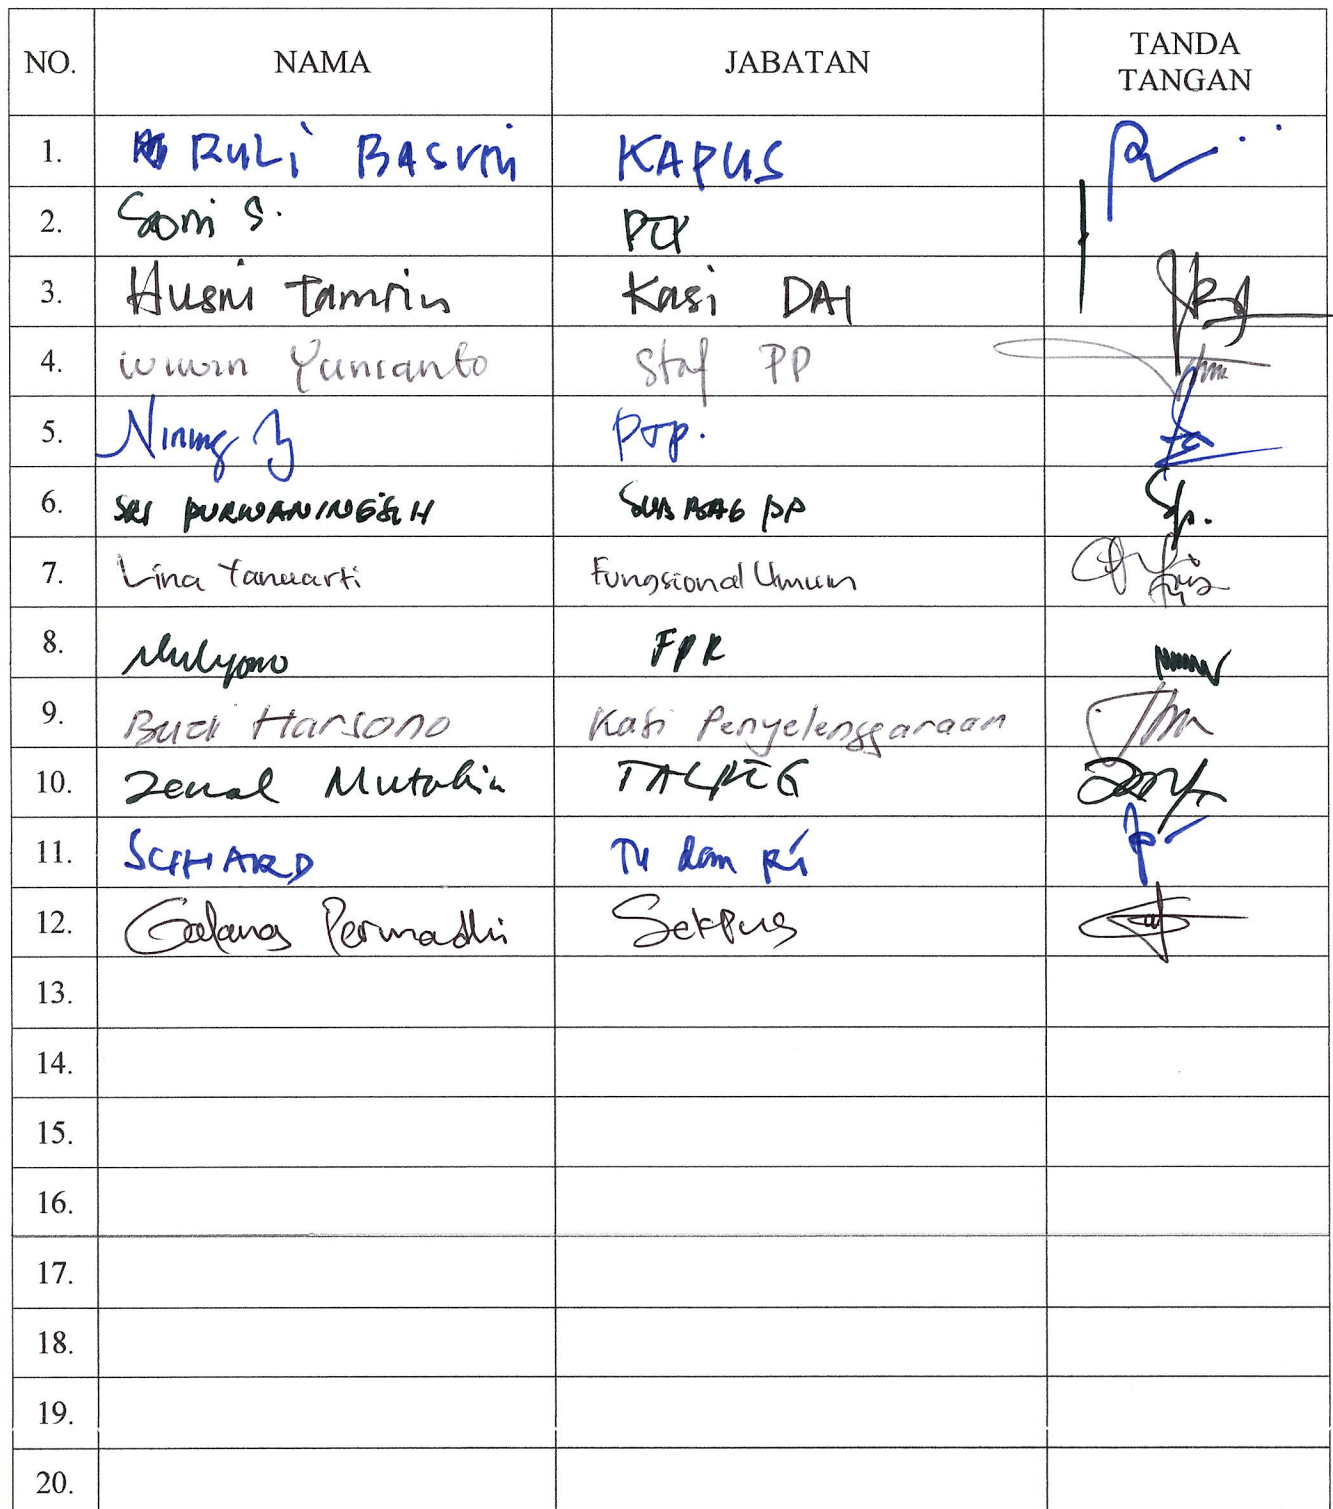 NO. NAMA JABATAN TANDA TANGAN
1. RULI BASUNI KAPUS
2. Soni S. PTP
3. Husni Tamrin Kasi DAI
4. Yunianto Staf PP
5. Nining PTP.
6. SRI PURWANINGSIH SUBBAG PP
7. Lina Yanuarti Fungsional Umum
8. Mulyono FPK
9. Budi Harsono Kasi Penyelenggaraan
10. Zenal Mutakin
11. SUHARD TU dan
12. Galang Permadhi Sekpus
13.
14.
15.
16.
17.
18.
19.
20.